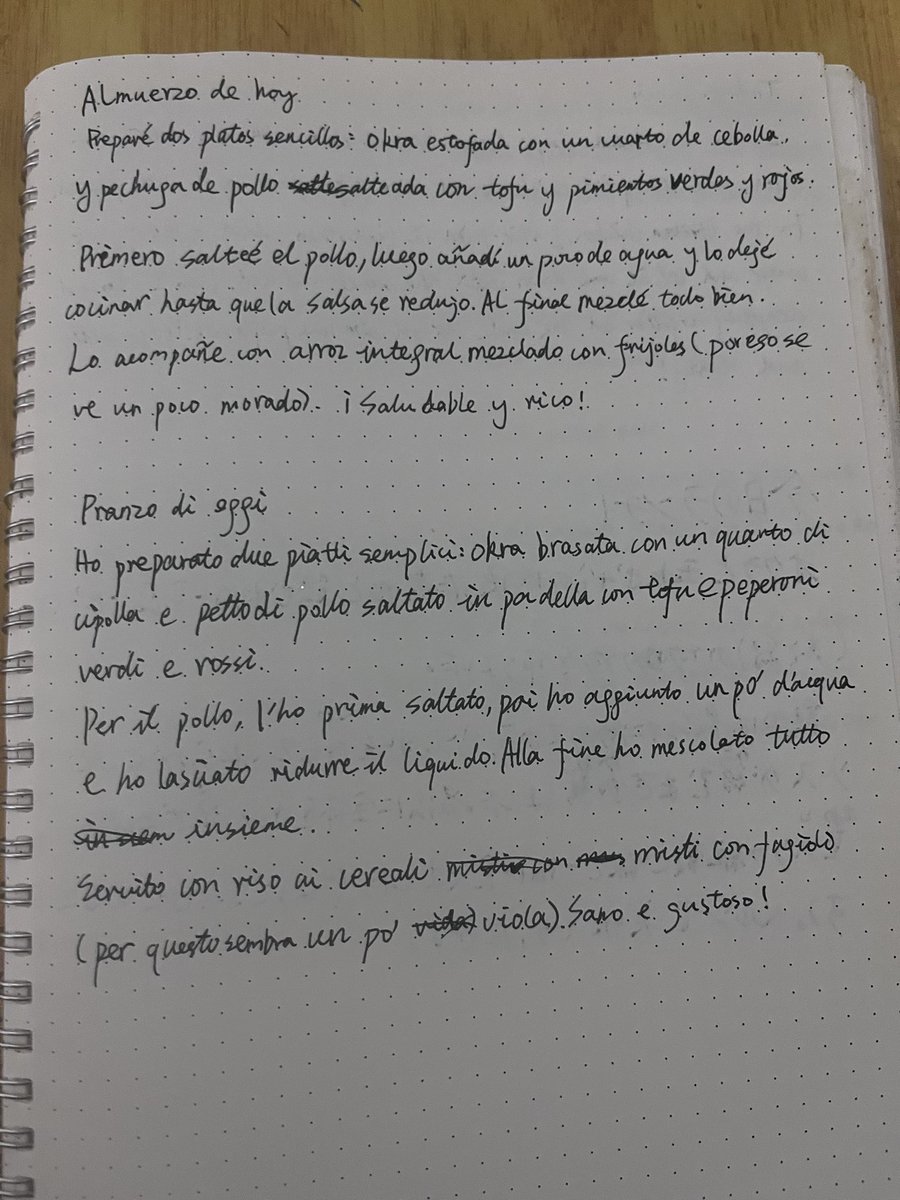 Almuerzo de hoy
Preparé dos platos sencillos: Okra estofada con un cuarto de cebolla,
y pechuga de pollo salteada con tofu y pimientos verdes y rojos.
Primero salteé el pollo, luego añadí un poco de agua y lo dejé
cocinar hasta que la salsa se redujo. Al final mezclé todo bien.
Lo acompañe con arroz integral mezclado con frijoles (por eso se
ve un poco morado). ¡Saludable y rico!
Pranzo di oggi
Ho preparato due piatti semplici: Okra brasata con un quarto di
cipolla e petto di pollo saltato in padella con tofu e peperoni
verdi e rossi.
Per il pollo, l'ho prima saltato, poi ho aggiunto un po' d'acqua
e ho lasciato ridurre il liquido. Alla fine ho mescolato tutto
insieme.
Servito con riso ai cereali misti con fagidi
(per questo sembra un po' vio(a). Sano e gustoso!